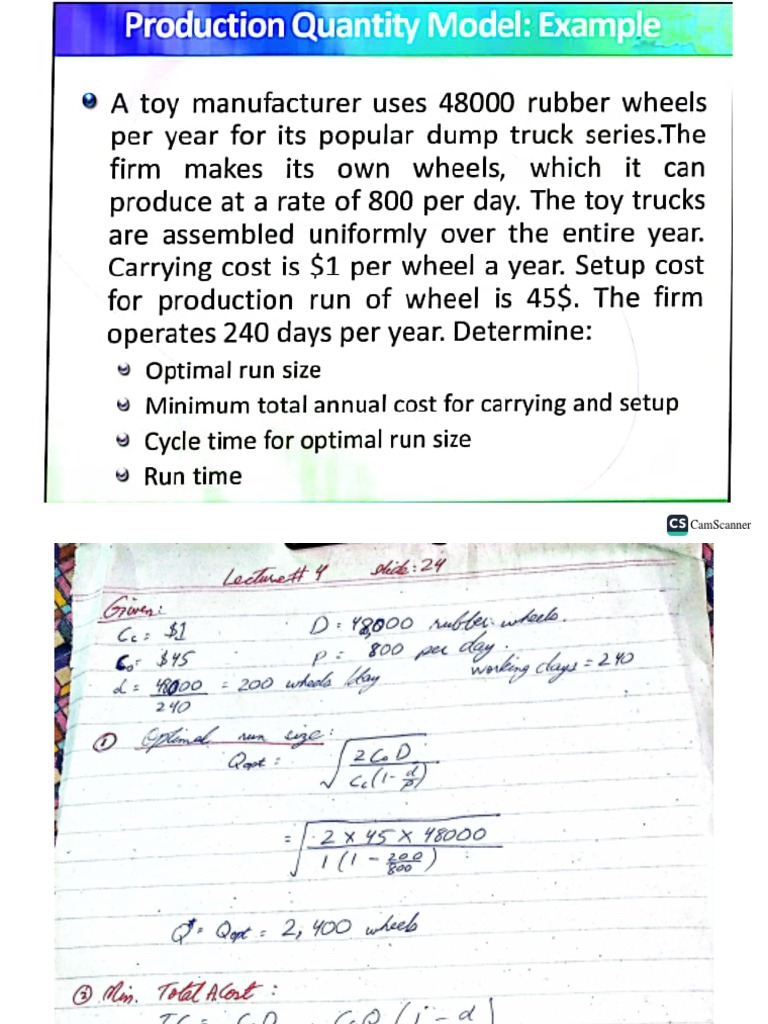 Production Quantity Model: Example
A toy manufacturer uses 48000 rubber wheels
per year for its popular dump truck series.The
firm makes its own wheels, which it can
produce at a rate of 800 per day. The toy trucks
are assembled uniformly over the entire year.
Carrying cost is $1 per wheel a year. Setup cost
for production run of wheel is 45$. The firm
operates 240 days per year. Determine:
Optimal run size
Minimum total annual cost for carrying and setup
Cycle time for optimal run size
Run time
CS CamScanner
Lecture# 4 slide: 24
Given:
Cc = $1 D = 48,000 rubber wheels.
Co = $45 P = 800 per day.
d = 48000/240 = 200 wheels/day working days = 240
① Optimal run size:
Qopt = √(2CoD / Cc(1-d/p))
= √(2 x 45 x 48000 / 1(1 - 200/800))
Q* = Qopt = 2,400 wheels
② Min. Total ACost: